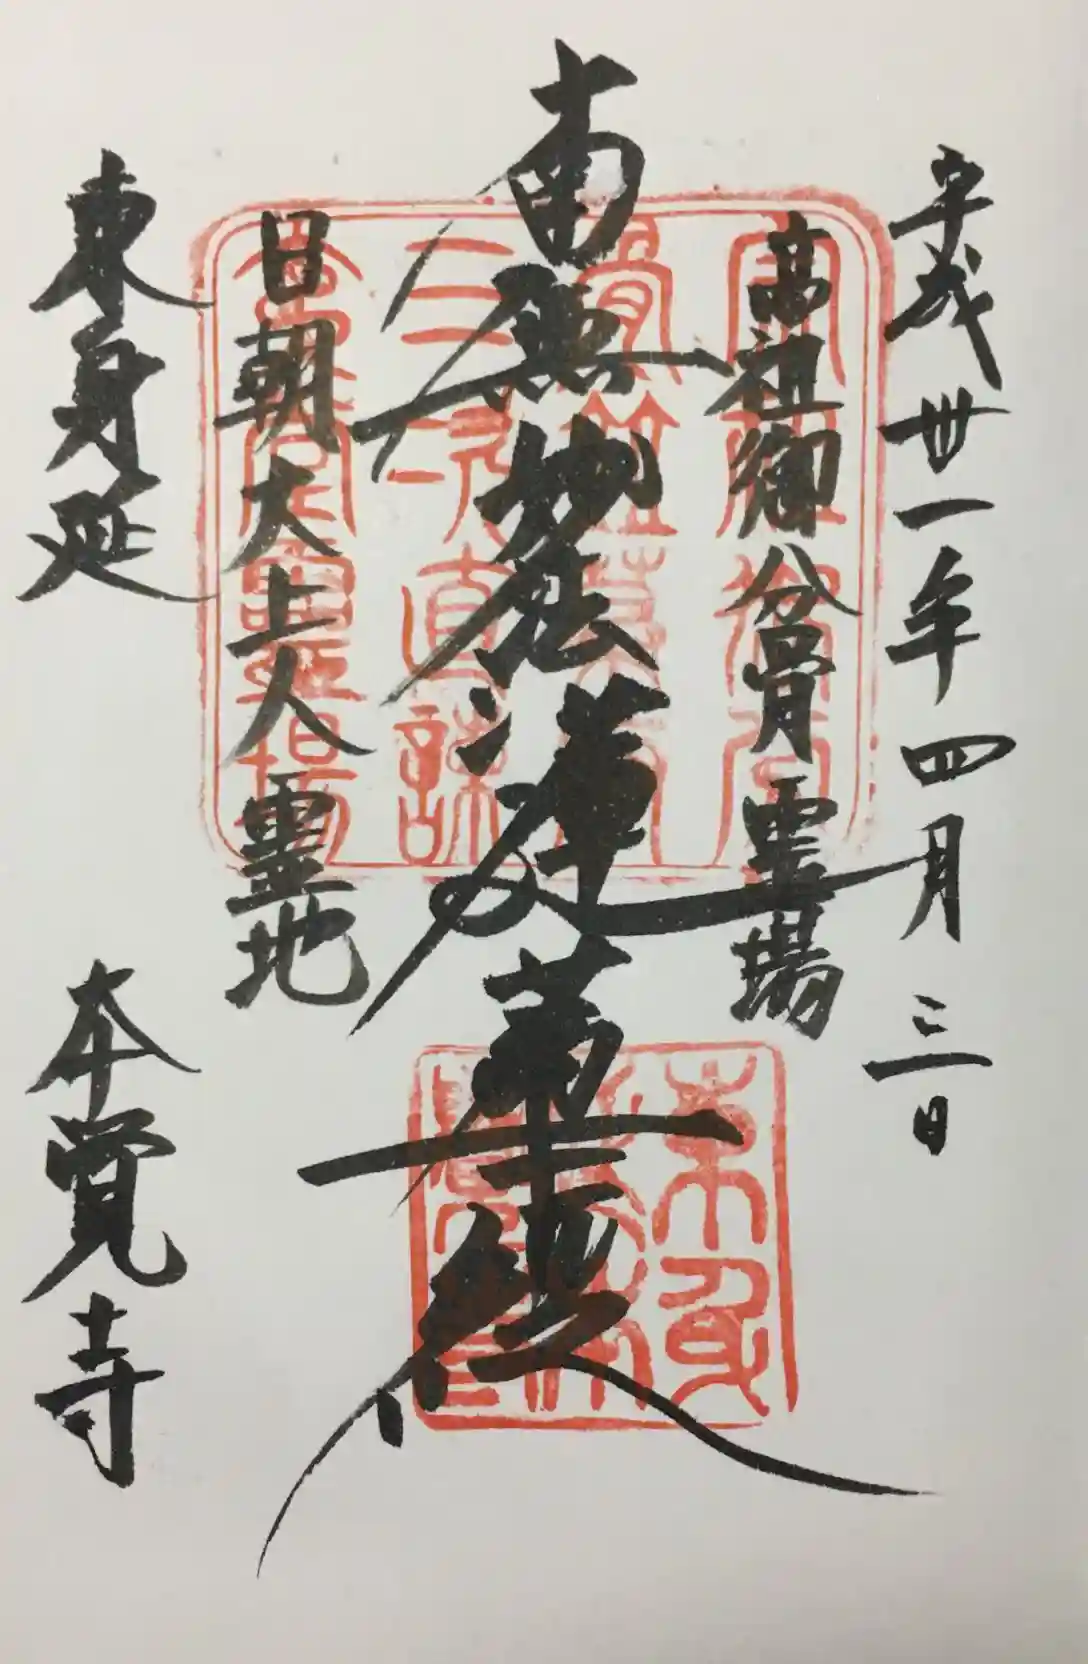 平成卅一年四月三日
高祖御分骨霊場
南無妙法蓮華経
日朝大上人霊地
東身延
本覚寺